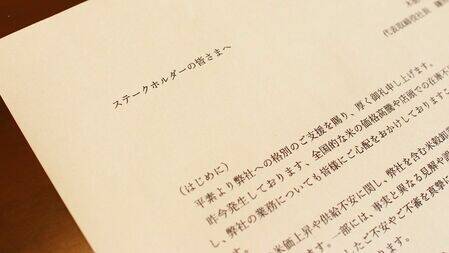 代表取締役社長
ステークホルダーの皆さまへ
(はじめに)
平素より弊社への格別のご支援を賜り、厚く御礼申し上げます。
昨今発生しております、全国的な米の価格高騰や店頭での在庫不
し、弊社の業務についても皆様にご心配をおかけしておりますこ
米価上昇や供給不安に関し、弊社を含む米穀卸業
ます。一部には、事実と異なる見解や誤
したご不安やご不審を真摯に
ります。